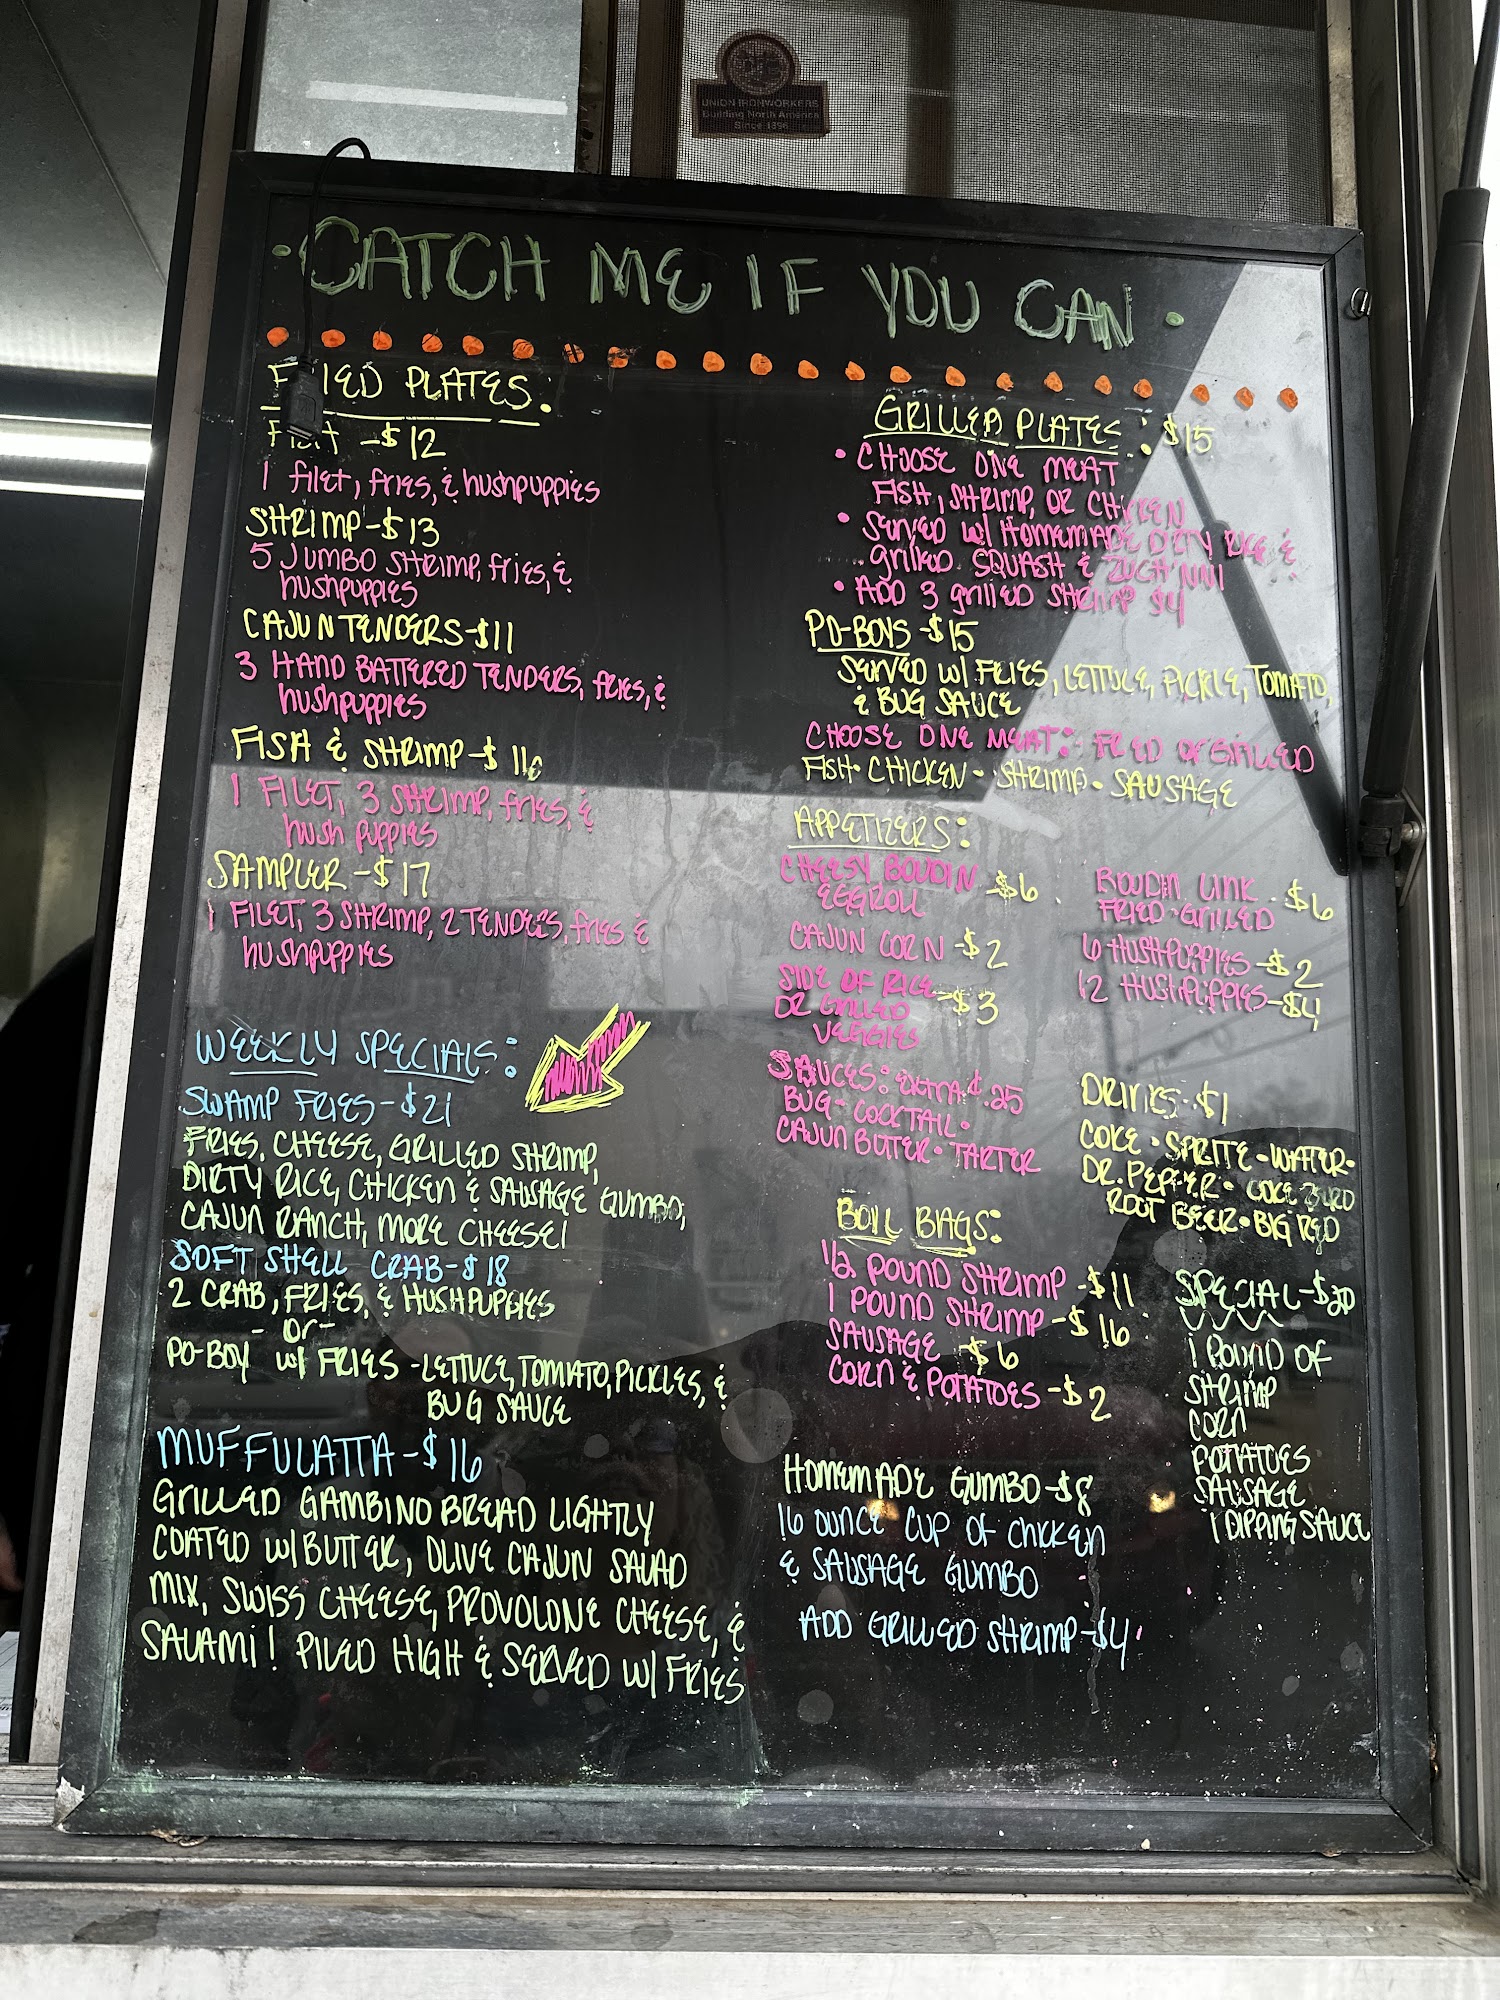 UNION IRONWORKERS
Building North America
Since 1896
·CATCH ME IF YOU CAN·
FRIED PLATES:
FISH -$12
1 filet, fries, & hushpuppies
SHRIMP-$13
5 JUMBO SHRIMP, fries, &
hushpuppies
CAJUN TENDERS-$11
3 HAND BATTERED TENDERS, fries, &
hushpuppies
FISH & SHRIMP-$16
1 FILET, 3 SHRIMP, fries, &
hush puppies
SAMPLER-$17
1 FILET, 3 SHRIMP, 2 TENDERS, fries &
hushpuppies
WEEKLY SPECIALS:
SWAMP FRIES-$21
FRIES, CHEESE, GRILLED SHRIMP,
DIRTY RICE, CHICKEN & SAUSAGE GUMBO,
CAJUN RANCH, MORE CHEESE!
SOFT SHELL CRAB-$18
2 CRAB, FRIES, & HUSHPUPPIES
-or-
PO-BOY w/ FRIES-LETTUCE, TOMATO, PICKLES, &
BUG SAUCE
MUFFULATTA-$16
GRILLED GAMBINO BREAD LIGHTLY
COATED w/ BUTTER, OLIVE CAJUN SALAD
MIX, SWISS CHEESE, PROVOLONE CHEESE, &
SALAMI! PILED HIGH & SERVED w/ FRIES
GRILLED PLATES: $15
• CHOOSE ONE MEAT
FISH, SHRIMP, OR CHICKEN
• SERVED w/ HOMEMADE DIRTY RICE &
grilled SQUASH & ZUCHINNI
• ADD 3 grilled SHRIMP $4
PO-BOYS-$15
SERVED w/ FRIES, LETTUCE, PICKLE, TOMATO,
& BUG SAUCE
CHOOSE ONE MEAT: FRIED OR GRILLED
FISH• CHICKEN• SHRIMP• SAUSAGE
APPETIZERS:
CHEESY BOUDIN
EGGROLL -$6
CAJUN CORN -$2
SIDE OF RICE
OR GRILLED
VEGGIES -$3
BOUDIN LINK
FRIED•GRILLED -$6
6 HUSHPUPPIES-$2
12 HUSHPUPPIES-$4
SAUCES: EXTRA ¢.25
BUG•COCKTAIL•
CAJUN BUTTER•TARTER
DRINKS-$1
COKE•SPRITE•WATER•
DR. PEPPER•COKE ZERO
ROOT BEER•BIG RED
BOIL BAGS:
1/2 POUND SHRIMP-$11
1 POUND SHRIMP-$16
SAUSAGE -$6
CORN & POTATOES-$2
SPECIAL-$20
1 POUND OF
SHRIMP
CORN
POTATOES
SAUSAGE
1 DIPPING SAUCE
HOMEMADE GUMBO-$8
16 OUNCE CUP OF CHICKEN
& SAUSAGE GUMBO
ADD GRILLED SHRIMP-$4